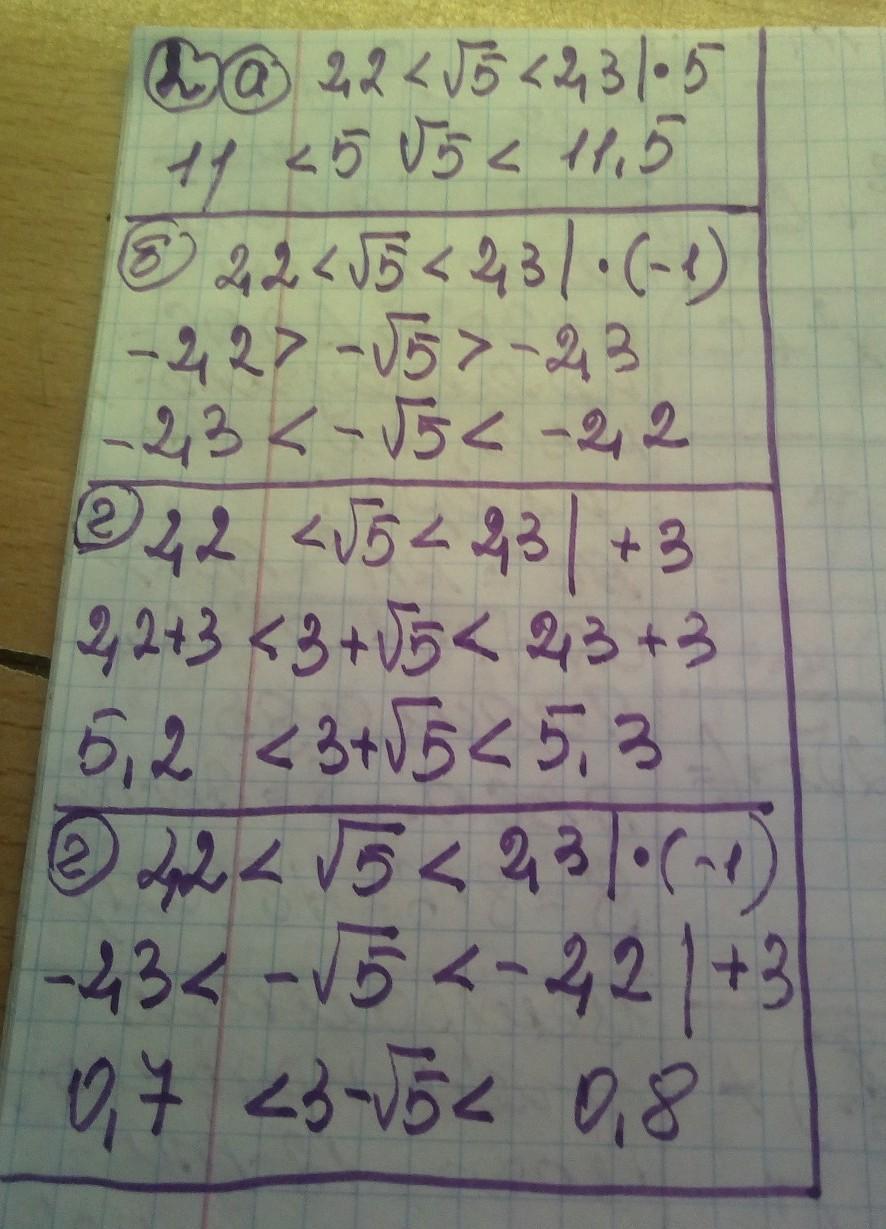 2 а 2,2 < √5 < 2,3 | · 5
11 < 5 √5 < 11,5
б 2,2 < √5 < 2,3 | · (-1)
-2,2 > -√5 > -2,3
-2,3 < -√5 < -2,2
г 2,2 < √5 < 2,3 | +3
2,2+3 < 3+√5 < 2,3+3
5,2 < 3+√5 < 5,3
г 2,2 < √5 < 2,3 | · (-1)
-2,3 < -√5 < -2,2 | +3
0,7 < 3-√5 < 0,8